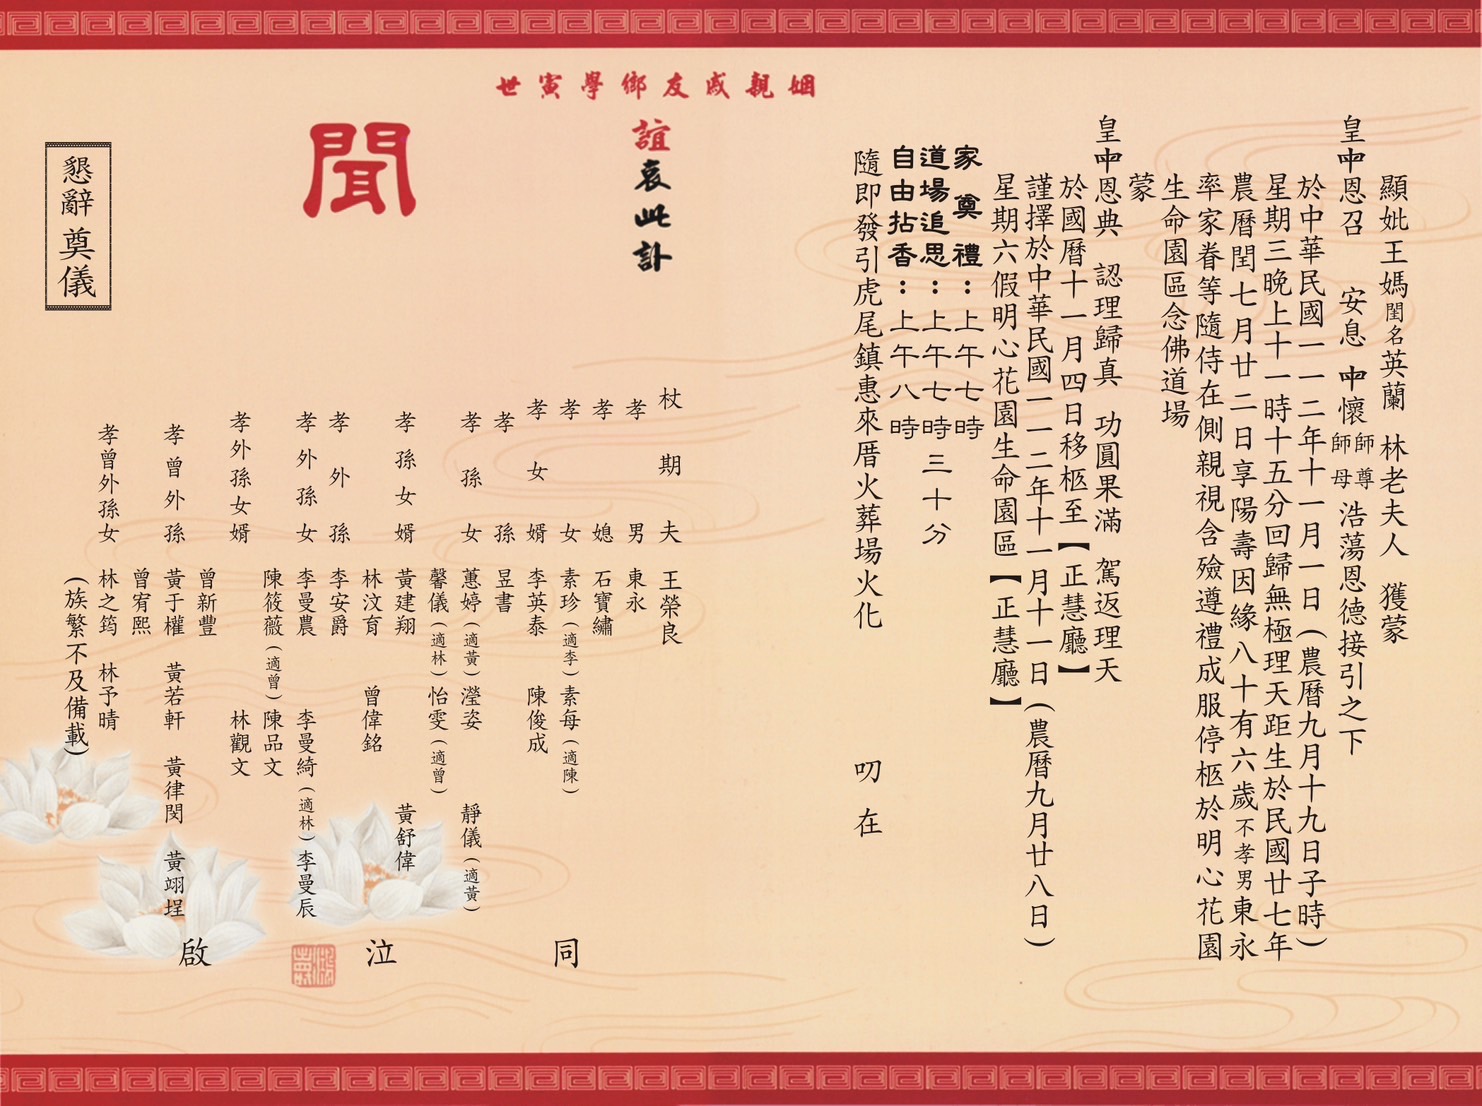 顯妣王媽閨名英蘭 林老夫人 獲蒙
皇𠁩恩召 安息𠁩懷師尊師母浩蕩恩德接引之下
於中華民國一一二年十一月一日(農曆九月十九日子時)
星期三晚上十一時十五分回歸無極理天距生於民國廿七年
農曆閏七月廿二日享陽壽因緣八十有六歲不孝男東永
率家眷等隨侍在側親視含殮遵禮成服停柩於明心花園
生命園區念佛道場
蒙
皇𠁩恩典 認理歸真 功圓果滿 駕返理天
於國曆十一月四日移柩至【正慧廳】
謹擇於中華民國一一二年十一月十一日(農曆九月廿八日)
星期六假明心花園生命園區【正慧廳】
家奠禮：上午七時
道場追思：上午七時三十分
自由拈香：上午八時
隨即發引虎尾鎮惠來厝火葬場火化
叨在
姻親戚友鄉學寅世
誼哀此訃
聞
杖期夫 王榮良
孝男 東永
孝媳 石寶繡
孝女 素珍(適李)素每(適陳)
孝女婿 李英泰 陳俊成
孝孫 昱書
孝孫女 蕙婷(適黃)瀅姿 靜儀(適黃)
馨儀(適林)怡雯(適曾)
孝孫女婿 黃建翔 黃舒偉
林汶育 曾偉銘
孝外孫 李安爵
孝外孫女 李曼農 李曼綺(適林)李曼辰
陳筱薇(適曾)陳品文
孝外孫女婿 林觀文
曾新豐
孝曾外孫 黃于權 黃若軒 黃律閔 黃翊埕
曾宥熙
孝曾外孫女 林之筠 林予晴
(族繁不及備載)
同泣啟
懇辭奠儀